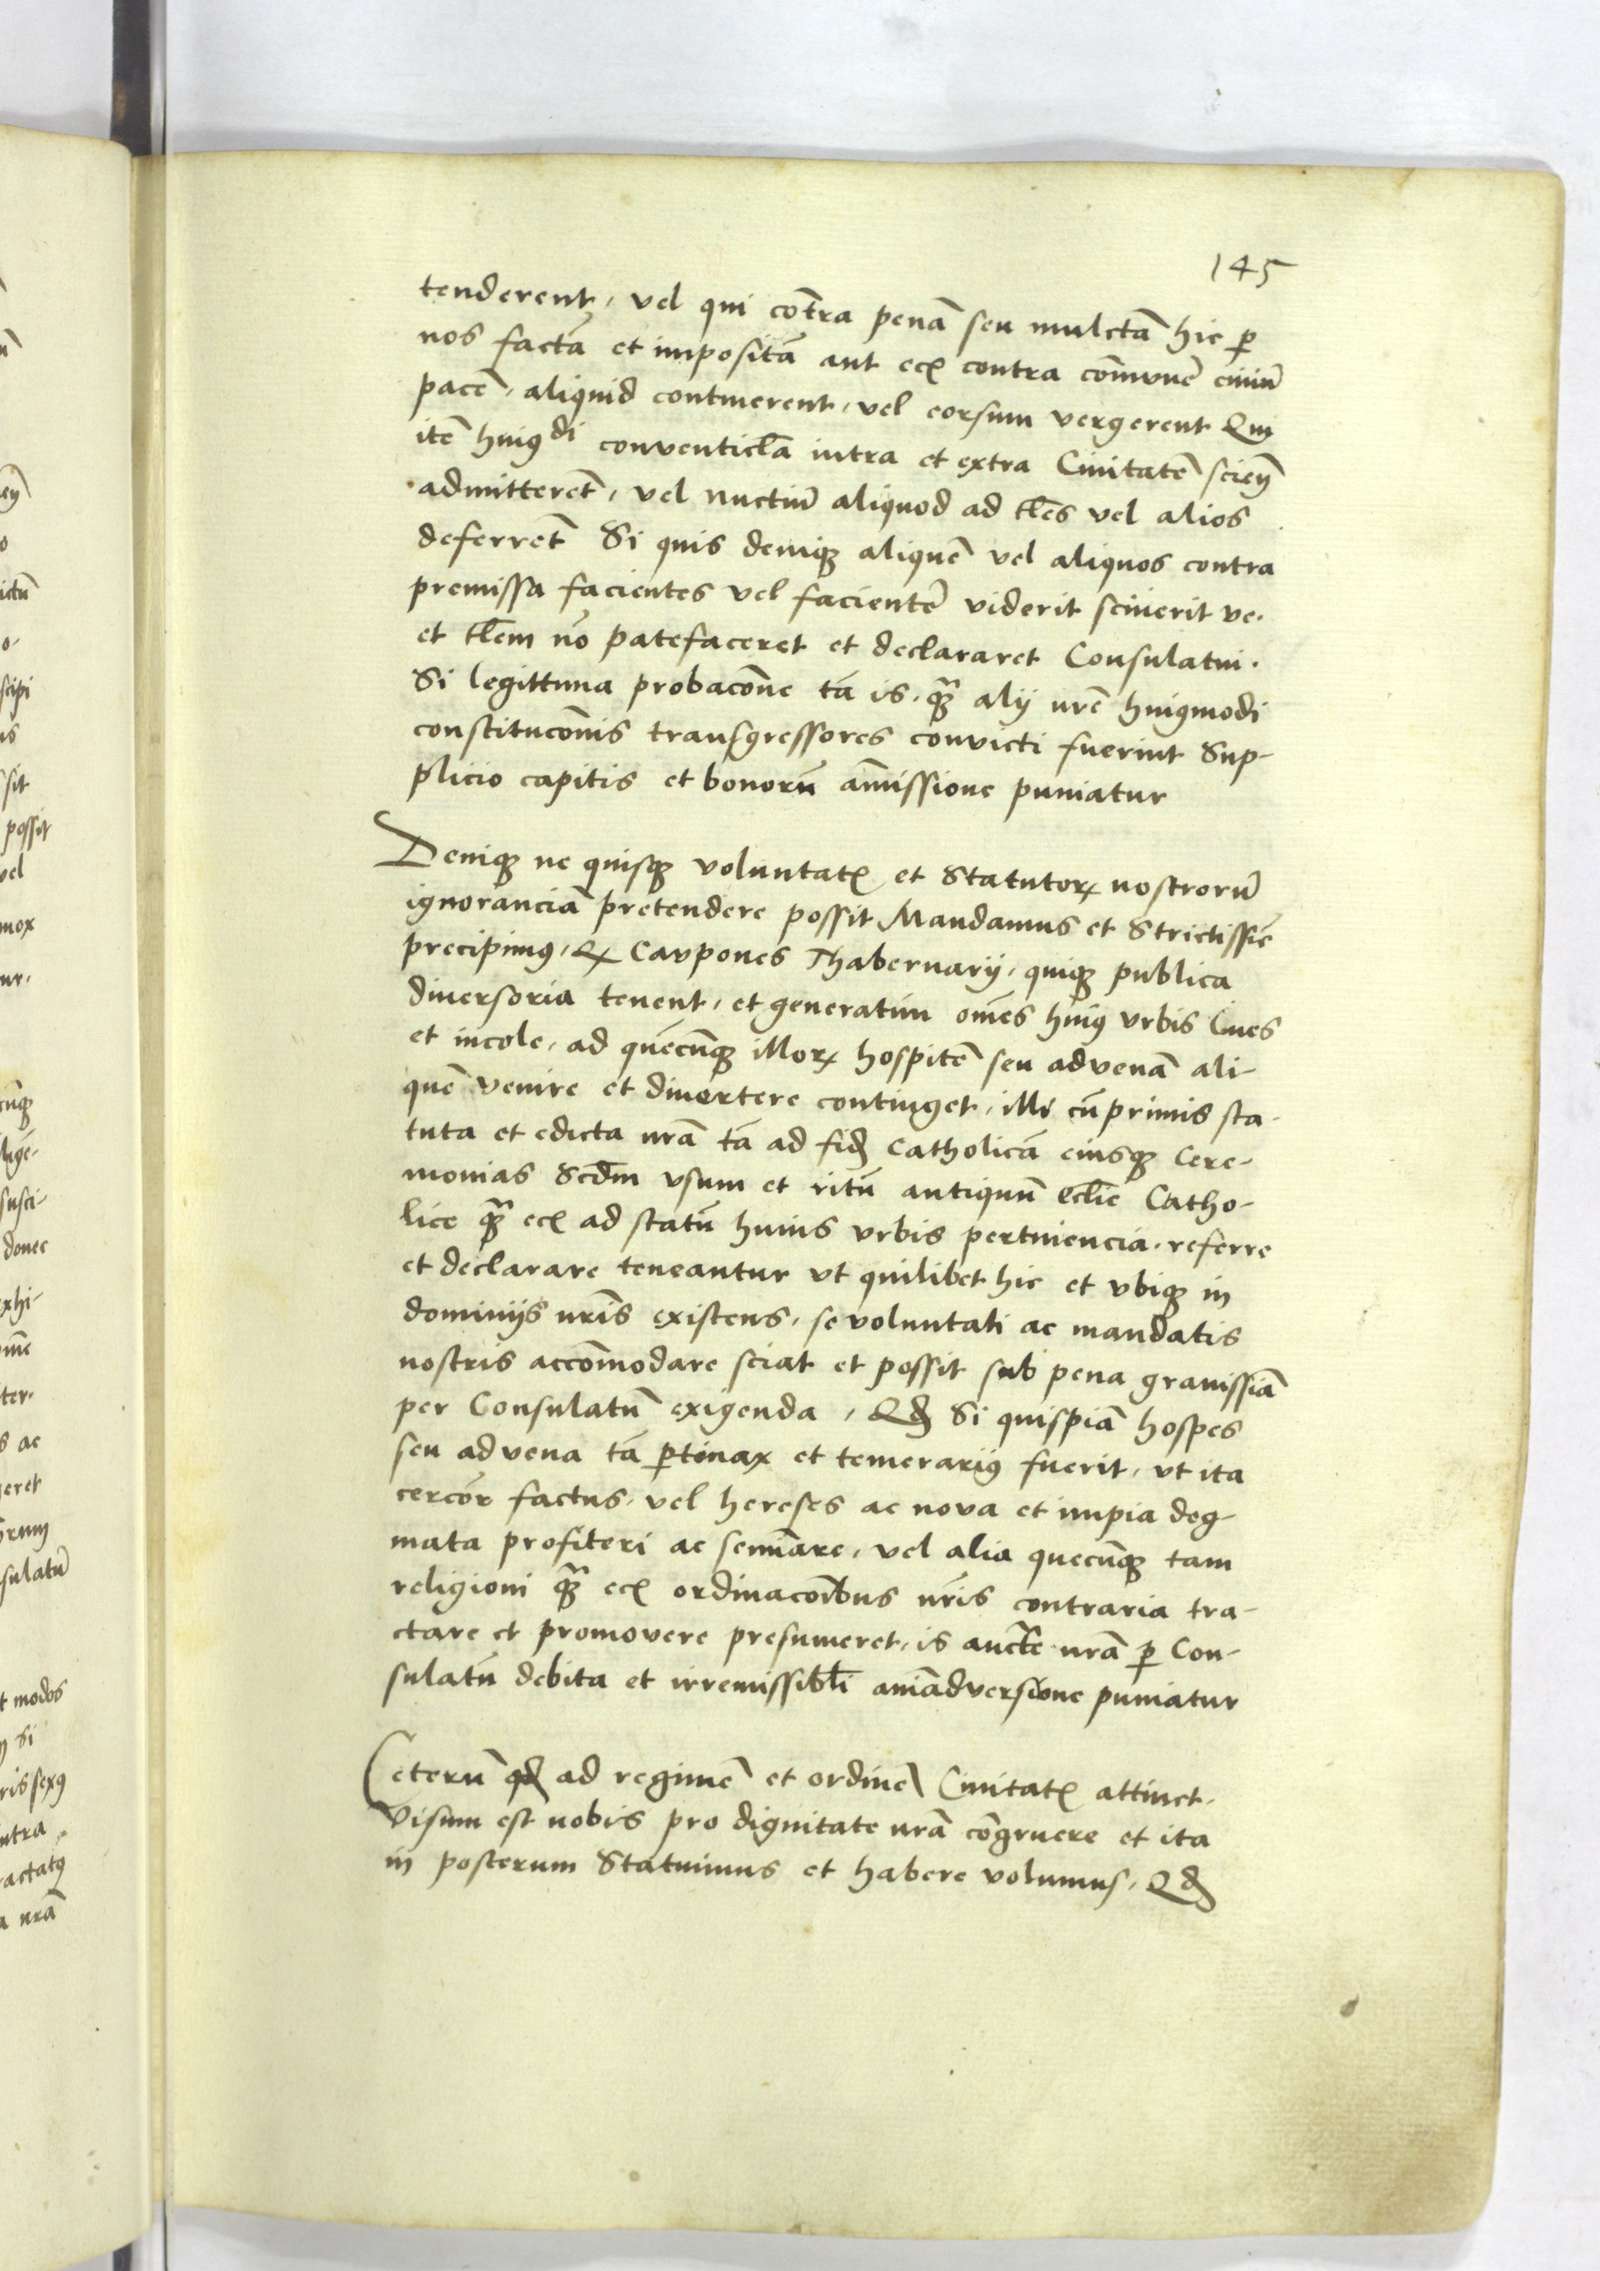 145
tenderent, vel qui cōtra penā seu mulctā hic p
nos factā et impositā aut ecꝫ contra com̄vnē ciuiū
pacē, aliquid continerent, vel eorsum vergerent Qui
itē huiꝰdi conventicl̄a intra et extra Ciuitatē scien̄
admitterēt, vel nuctiū aliquod ad tl̄es vel alios
deferrēt Si quis deniqꝫ aliquē vel aliquos contra
premissa facientes vel facientē viderit sciuerit ve.
et tl̄em nō patefaceret et declararet Consulatui.
Si legittima probacōne tā is. qꝫ̄ alij nrē huiꝰmodi
constitucōnis transgressores convicti fuerint Sup-
plicio capitis et bonorū am̄issione puniatur
Deniqꝫ ne quisqꝫ voluntatꝫ et Statutoꝝ nostrorū
ignoranciā pretendere possit Mandamus et Strictissiē
precipimꝰ, Qꝫ Caupones Thabernarij, quiqꝫ publica
diuersoria tenent, et generatim om̄es huiꝰ vrbis Ciues
et incole, ad quēcūqꝫ illoꝝ hospitē seu advenā ali-
quē venire et divertere continget, illi cū primis sta-
tuta et edicta nrā tā ad fidꝫ catholicā eiusqꝫ Cere-
monias Scd̄m vsum et ritū antiquū eccl̄ie Catho-
lice qꝫ̄ ecꝫ ad statū huius vrbis pertinencia. referre
et declarare teneantur vt quilibet hic et vbiqꝫ in
dominijs nr̄is existens, se voluntati ac mandatis
nostris accōmodare sciat et possit sub pena grauissiā
per Consulatū exigenda, Qdꝫ Si quispiā hospes
seu advena tā ptinax et temerariꝰ fuerit, vt ita
cercōr factus, vel hereses ac nova et impia dog-
mata profiteri ac semīare, vel alia quecūqꝫ tam
religioni qꝫ̄ ecꝫ ordinacōibus nr̄is contraria tra-
ctare et promovere presumeret, is auctē nrā p Con-
sulatū debita et irremissibl̄i aniādversione puniatur
Ceterū qdꝫ ad regimē et ordinē Ciuitatꝫ attinet,
Visum est nobis pro dignitate nrā cōgruere et ita
in posterum Statuimus et habere volumus, Qdꝫ